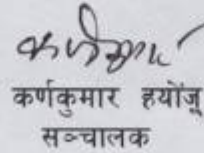 कर्णकुमार हयोँजू
सञ्चालक